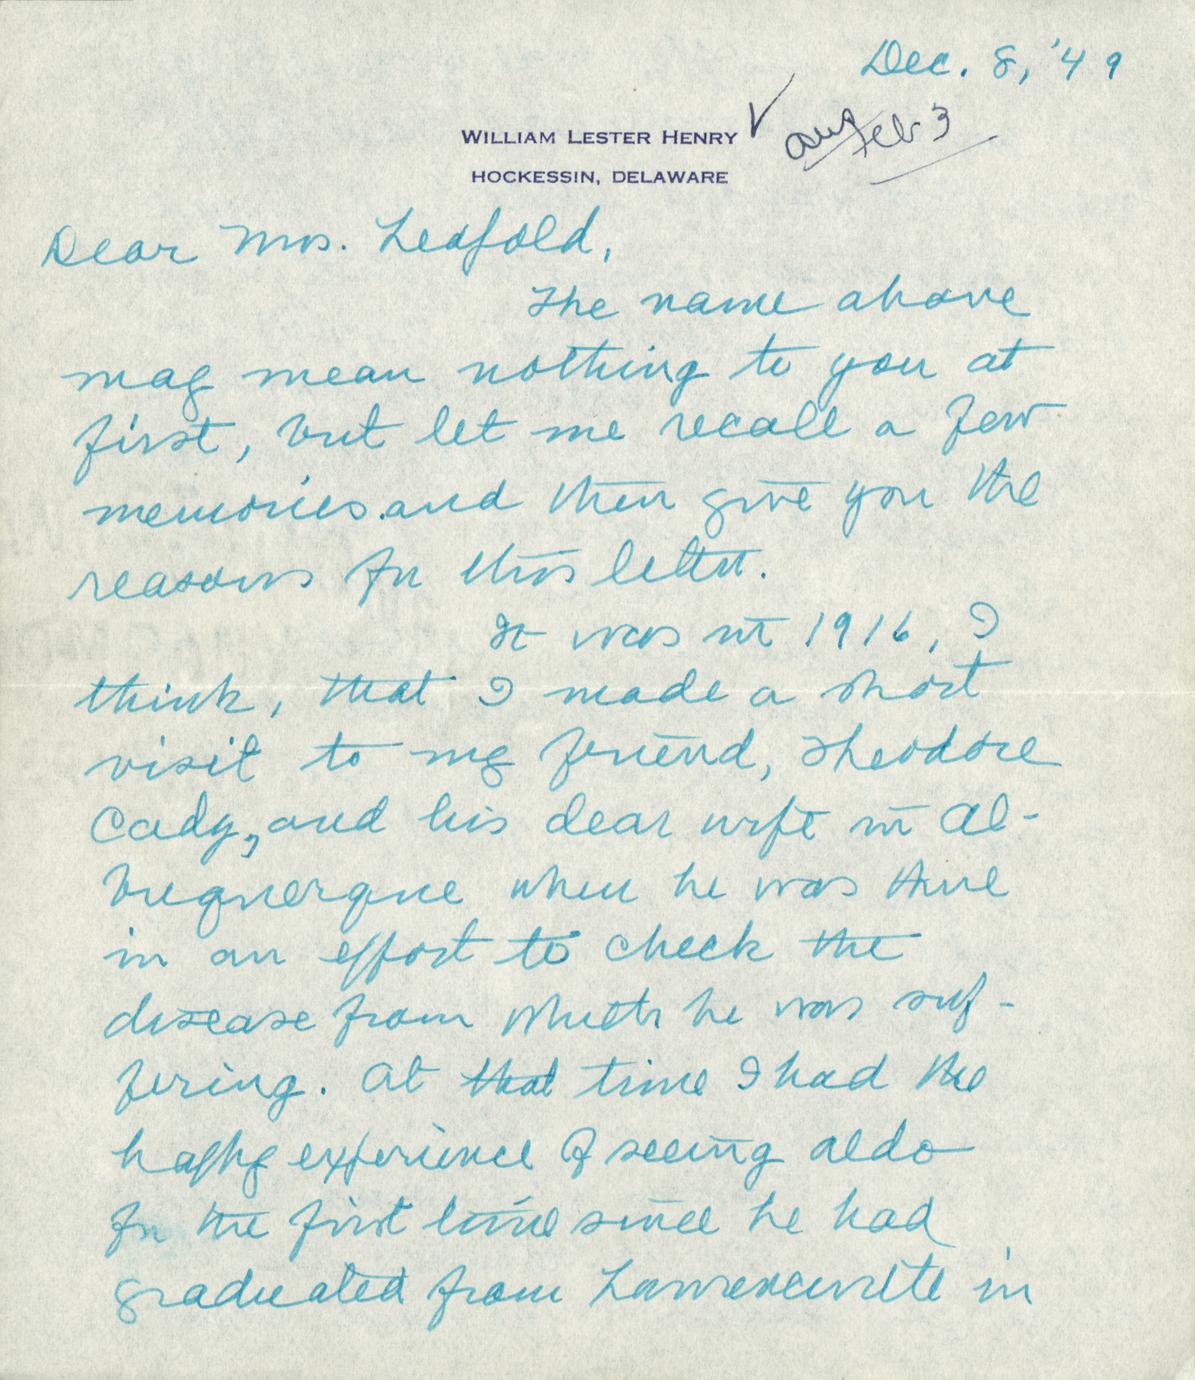 Dec. 8, '49
WILLIAM LESTER HENRY
ans Feb 3
HOCKESSIN, DELAWARE
Dear Mrs. Leopold,
The name above
may mean nothing to you at
first, but let me recall a few
memories and then give you the
reasons for this letter.
It was in 1916, I
think, that I made a short
visit to my friend, Theodore
Cady, and his dear wife in Al-
buquerque when he was there
in an effort to check the
disease from which he was suf-
fering. At that time I had the
happy experience of seeing Aldo
for the first time since he had
graduated from Lawrenceville in